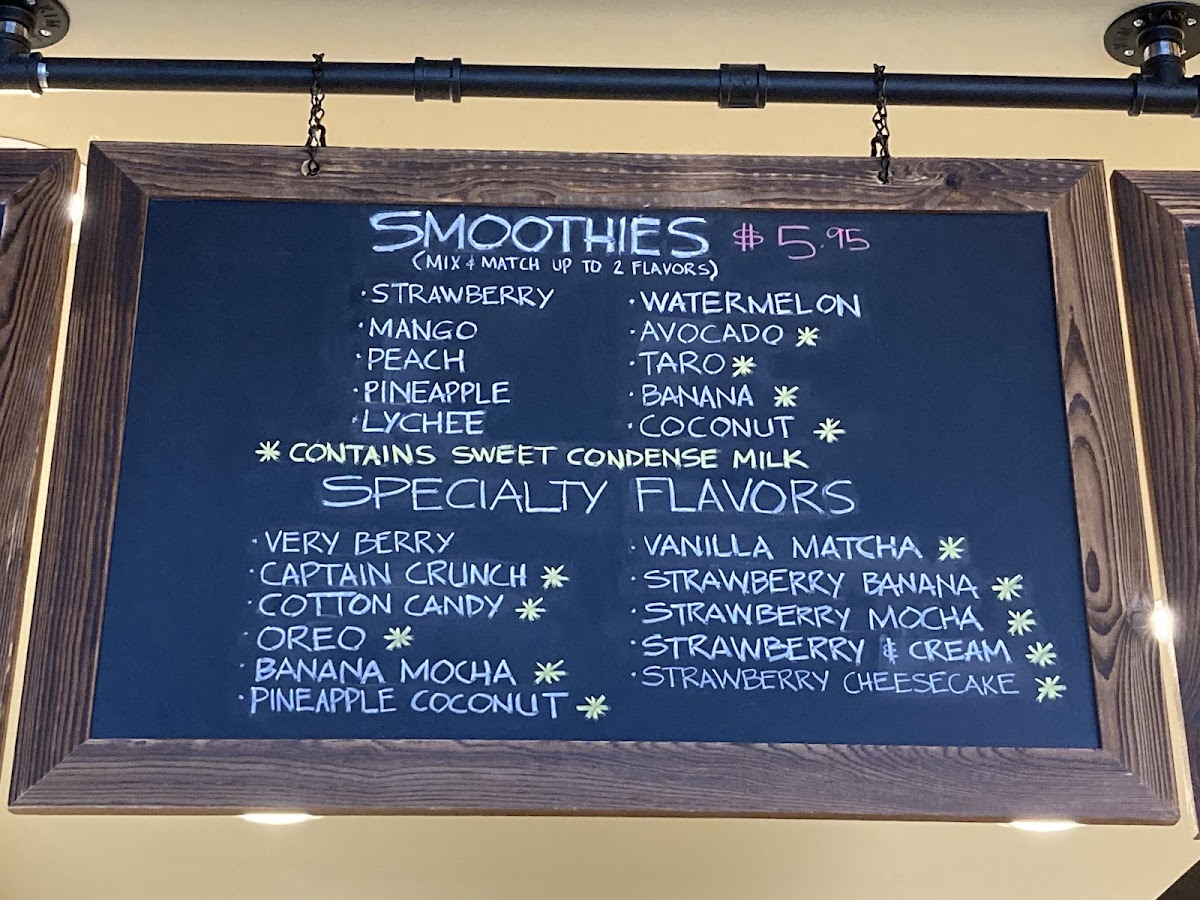 SMOOTHIES $5.95
(MIX & MATCH UP TO 2 FLAVORS)
·STRAWBERRY
·MANGO
·PEACH
·PINEAPPLE
·LYCHEE
·WATERMELON
·AVOCADO *
·TARO *
·BANANA *
·COCONUT *
* CONTAINS SWEET CONDENSE MILK
SPECIALTY FLAVORS
·VERY BERRY
·CAPTAIN CRUNCH *
·COTTON CANDY *
·OREO *
·BANANA MOCHA *
·PINEAPPLE COCONUT *
·VANILLA MATCHA *
·STRAWBERRY BANANA *
·STRAWBERRY MOCHA *
·STRAWBERRY & CREAM *
·STRAWBERRY CHEESECAKE *